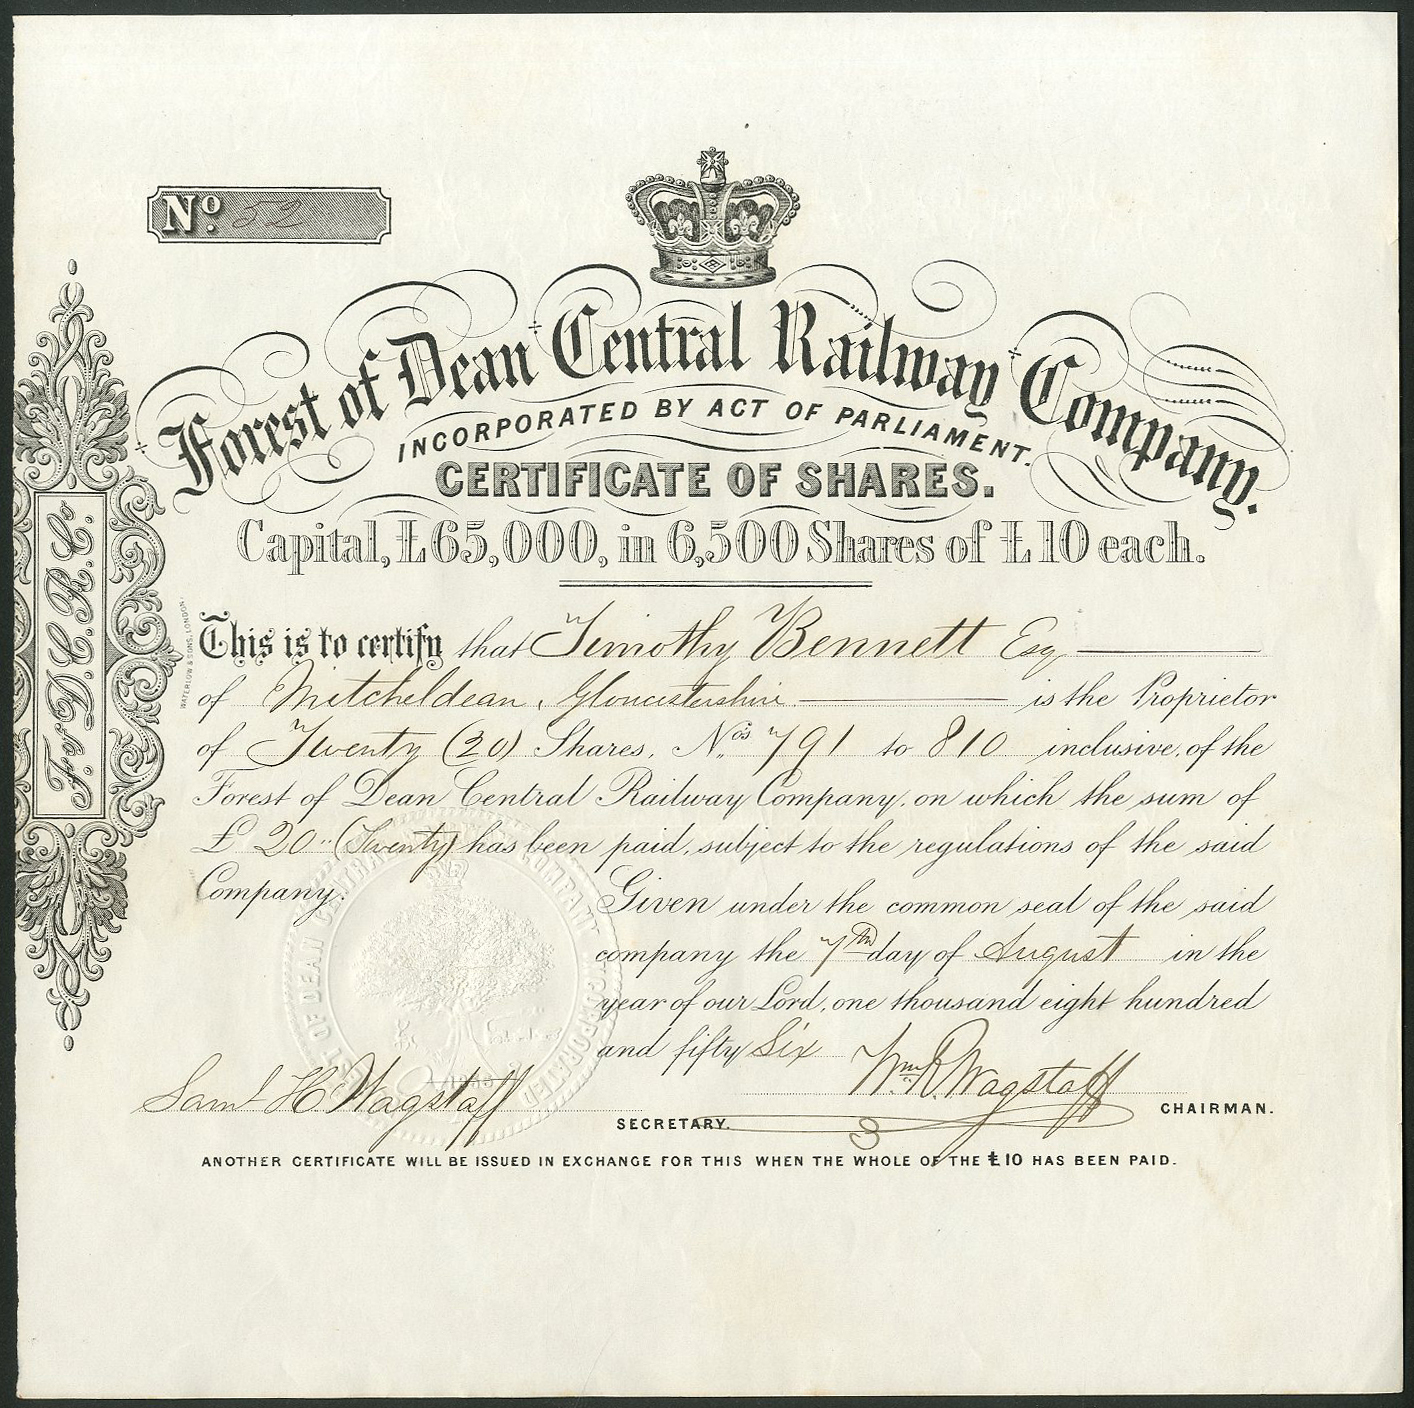 No. 52
Forest of Dean Central Railway Company.
INCORPORATED BY ACT OF PARLIAMENT.
CERTIFICATE OF SHARES.
Capital, £65,000, in 6,500 Shares of £10 each.
F. of D. C. R. Co.
WATERLOW & SONS, LONDON.
This is to certify that Timothy Bennett Esq
of Mitcheldean, Gloucestershire is the Proprietor
of Twenty (20) Shares, Nos. 791 to 810 inclusive, of the
Forest of Dean Central Railway Company, on which the sum of
£ 20 (Twenty) has been paid, subject to the regulations of the said
Company.
Given under the common seal of the said
company the 7th day of August in the
year of our Lord, one thousand eight hundred
and fifty Six
Saml H. Wagstaff
SECRETARY.
Wm. R. Wagstaff
CHAIRMAN.
3
ANOTHER CERTIFICATE WILL BE ISSUED IN EXCHANGE FOR THIS WHEN THE WHOLE OF THE £10 HAS BEEN PAID.
OF DEAN CENTRAL COMPANY INCORPORATED